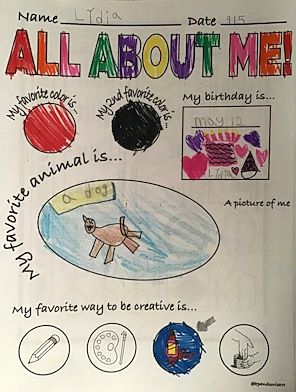 Name Lydia Date 9/5
ALL ABOUT ME!
My favorite color is...
My 2nd favorite color is...
My birthday is...
may 12
Lydia
My favorite animal is...
a dog
A picture of me
My favorite way to be creative is...